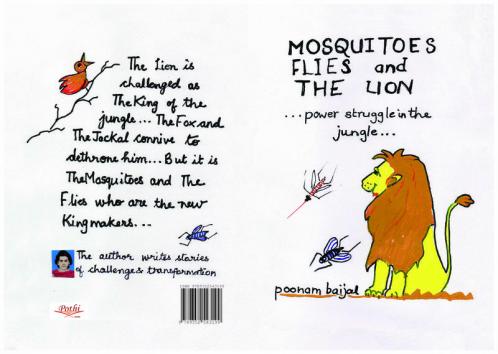 The Lion is
challenged as
The King of the
jungle... The Fox and
The Jackal connive to
dethrone him... But it is
The Mosquitoes and The
Flies who are the new
Kingmakers...
The author writes stories
of challenge & transformation
Pothi
.com
MOSQUITOES
FLIES and
THE LION
...power struggle in the
jungle...
poonam baijal